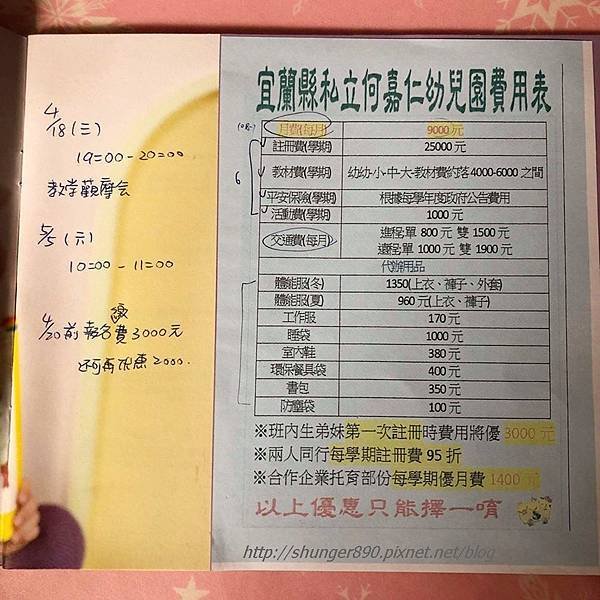 4/18(三)
19:00-20:00
教學觀摩会
5/5(六)
10:00-11:00
4/20前 報名費3000元
2000.
宜蘭縣私立何嘉仁幼兒園費用表
月費(每月) 9000元
註冊費(學期) 25000元
6
教材費(學期) 幼幼‧小‧中‧大‧教材費約落4000-6000之間
平安保險(學期) 根據每學年度政府公告費用
活動費(學期) 1000元
交通費(每月) 進程:單 800元 雙 1500元
遠程:單 1000元 雙 1900元
代辦用品
體能服(冬) 1350(上衣、褲子、外套)
體能服(夏) 960元(上衣、褲子)
工作服 170元
睡袋 1000元
室內鞋 380元
環保餐具袋 400元
書包 350元
防塵袋 100元
※班內生弟妹第一次註冊時費用將優3000元
※兩人同行每學期註冊費95折
※合作企業托育部份每學期優月費1400元
以上優惠只能擇一唷
http://shunger890.pixnet.net/blog